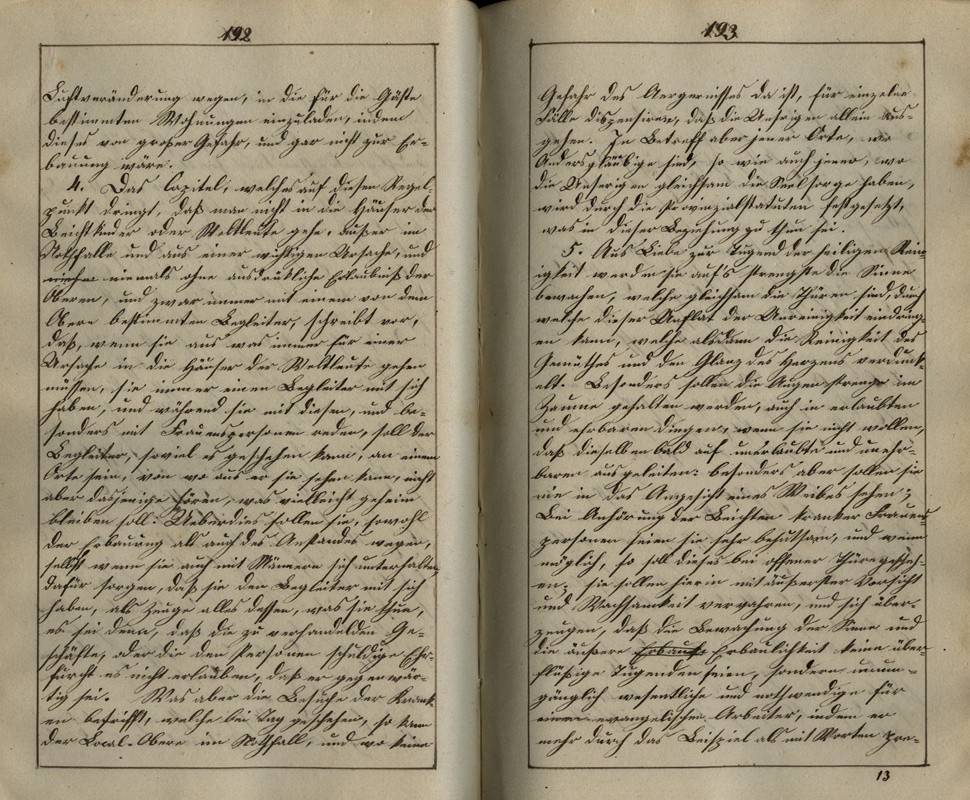 192
Luftveränderung wegen, in die für die Gäste
bestimmten Wohnungen einzuladen, indem
dieses von großer Gefahr, und gar nicht zur Er-
bauung wäre.
4. Das Capitel, welches auf diesen Regel-
punkt dringt, daß man nicht in die Häuser der
Beichtkinder oder Weltleute gehe, außer im
Nothfalle und aus einer wichtigen Ursache, und
niemals ohne ausdrükliche Erlaubniß der
Oberen, und zwar immer mit einem von dem
Obern bestimmten Begleiter, schreibt vor,
daß, wenn sie aus was immer für einer
Ursache in die Häuser der Weltleute gehen
müssen, sie immer einen Begleiter mit sich
haben, und während sie mit diesen, und be-
sonders mit Frauenspersonen reden, soll der
Begleiter, soviel es geschehen kann, an einem
Orte sein, von wo aus er sie sehen kann, nicht
aber dasjenige hören, was vielleicht geheim
bleiben soll. Ueberdies sollen sie, sowohl
der Erbauung als auch des Anstandes wegen,
selbst wenn sie auch mit Männern sich unterhalten
dafür sorgen, daß sie den Begleiter mit sich
haben, als Zeuge alles dessen, was sie thun,
es sei denn, daß die zu verhandelden Ge-
schäfte, oder die den Personen schuldige Ehr-
furcht es nicht erlauben, daß er gegenwär-
tig sei. Was aber die Besuche der Krank-
en betrifft, welche bei Tag geschehen, so kann
der Local-Obere im Nothfall, und wo keine
193
Gefahr des Aergernisses da ist, für einzelne
Fälle dispensiren, daß die Unsrigen allein aus-
gehen. In Betreff aber jener Orte, wo
Andersgläubige sind, so wie auch jener, wo
die Unserigen gleichsam die Seelsorge haben,
wird durch die Provinzialstatuten festgesetzt,
was in dieser Beziehung zu thun sei.
5. Aus Liebe zur Tugend der heiligen Rein-
igkeit werden sie auf's strengste die Sinne
bewachen, welche gleichsam die Thüren sind, durch
welche dieser Unflat der Unreinigkeit eindring-
en kann, welche alsdann die Reinigkeit des
Gemüthes und den Glanz des Herzens verdunk-
elt. Besonders sollen die Augen strenge im
Zaume gehalten werden, auch in erlaubten
und ehrbaren Dingen, wenn sie nicht wollen,
daß dieselben bald auf unerlaubte und unehr-
baren ausgeleiten: besonders aber sollen sie
nie in das Angesicht eines Weibes sehen;
Bei Anhörung der Beichten kranker Frauens-
personen seien sie sehr behutsam, und wenn
möglich, so soll dieses bei offener Thüre gescheh-
en; sie sollen hierin mit äußerster Vorsicht
und Wachsamkeit verfahren, und sich über-
zeugen, daß die Bewachung der Sinne und
die äußere Erbaulichkeit keine über
flüßige Tugenden seien, sondern unum-
gänglich wesentliche und nothwendige für
einen evangelischen Arbeiter, indem er
mehr durch das Beispiel als mit Worten pre-
13